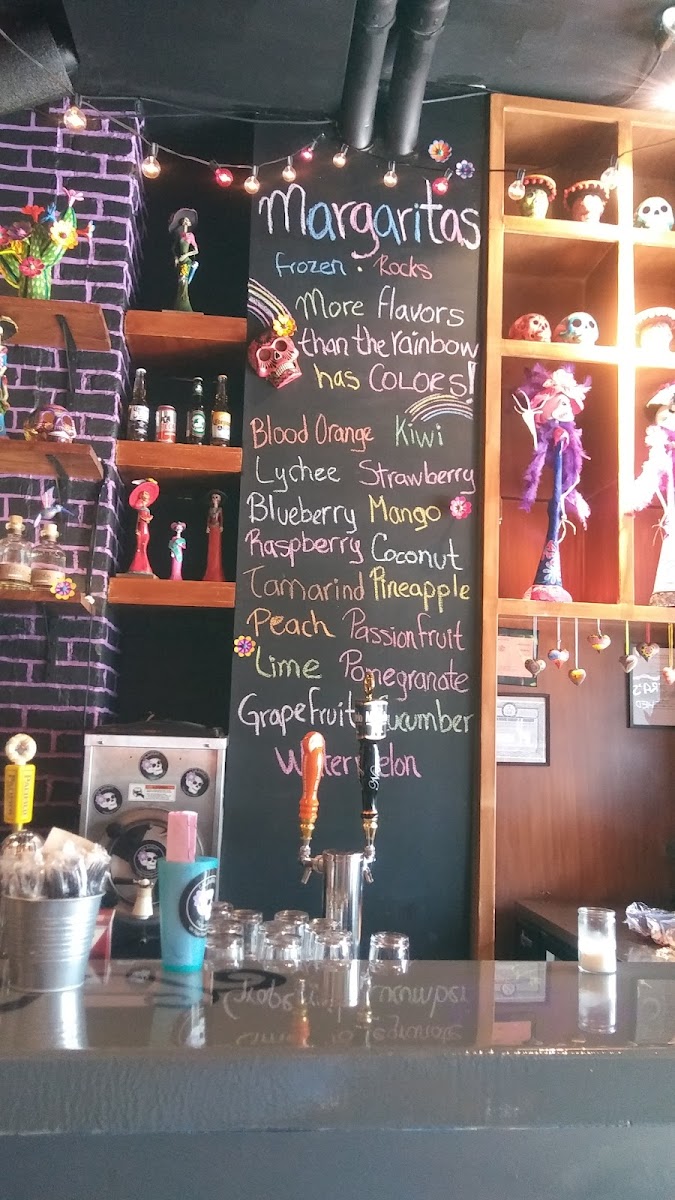 Margaritas
frozen · Rocks
More flavors
than the rainbow
has COLORS!
Blood Orange Kiwi
Lychee Strawberry
Blueberry Mango
Raspberry Coconut
Tamarind Pineapple
Peach Passionfruit
Lime Pomegranate
Grapefruit Cucumber
Watermelon